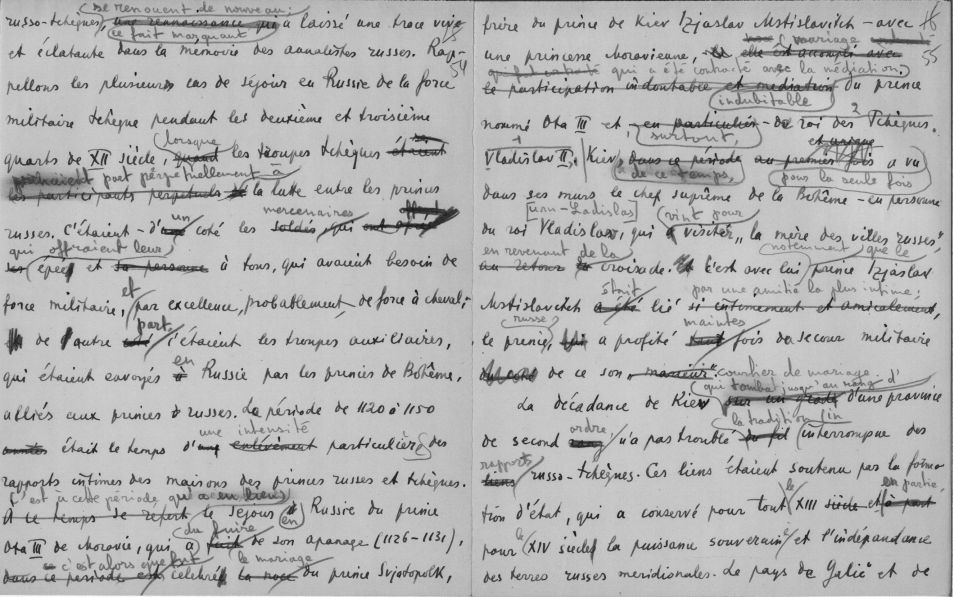 se renouent de nouveau:
russo-tchèques, une renaissance qui a laissé une trace vive
ce fait marquant
et éclatante dans la mémoire des annalistes russes. Rap-
54
pellons les plusieurs cas de séjour en Russie de la force
militaire tchèque pendant les deuxième et troisième
quarts de XII siècle, lorsque quand les troupes tchèques étaient
prenaient part perpétuellement à
les participants perpétuels la lutte entre les princes
russes. C'étaient - d'un coté les soldés, qui
mercenaires
qui offraient leur
épée et sa personne à tous, qui avaient besoin de
force militaire, et par excellence, probablement, de force à cheval;
de l'autre part c'étaient les troupes auxiliaires,
qui étaient envoyés en Russie par les princes de Bohême,
alliés aux princes russes. La période de 1120 à 1150
était le temps d'une intensité particulière des
rapports intimes des maisons des princes russes et tchèques.
C'est à cette période qui a eu lieu
A ce temps se réfert le séjour en Russie du prince
Ota III de Moravie, qui a fuire de son apanage (1126-1131),
c'est alors que fut le mariage
dans ce période est célébré la noce du prince Svjatopolk,
frère du prince de Kiev Izjaslav Mstislavitch - avec
55
une princesse Moravienne, mariage
elle est accompli avec
qui a été contracté avec la médiation
le participation indoutable et médiation du prince
indubitable
nommé Ota III et, en particulier - de roi des Tchèques.
surtout,
Vladislav II. Kiev, dans ce période au premier fois a vu
de ce temps, pour la seule fois
dans ses murs le chef suprême de la Bohême - en personne
du roi Vladislav, qui vint pour visiter "la mère des villes russes",
en revenant de la notemment, que le
au retour croisade. C'est avec lui prince Izjaslav
était par une amitié la plus intime;
Mstislavitch a été lié si intimement et amicalement,
russe maintes
le prince, a profité fois de secour militaire
de ce son "coucher de mariage.
(qui tombat jusqu'au rang d'
La décadance de Kiev sur un grade d'une province
la tradition (in
de second ordre n'a pas troublé du fil interrompue des
rapports
liens russo-tchèques. Ces liens étaient soutenu pas la forma-
en partie,
tion d'état, qui a conservé pour tout le XIII siècle et à part
pour le XIV siècle la puissance souverain et l'indépendance
des terres russes meridionales. Le pays de Galič et de